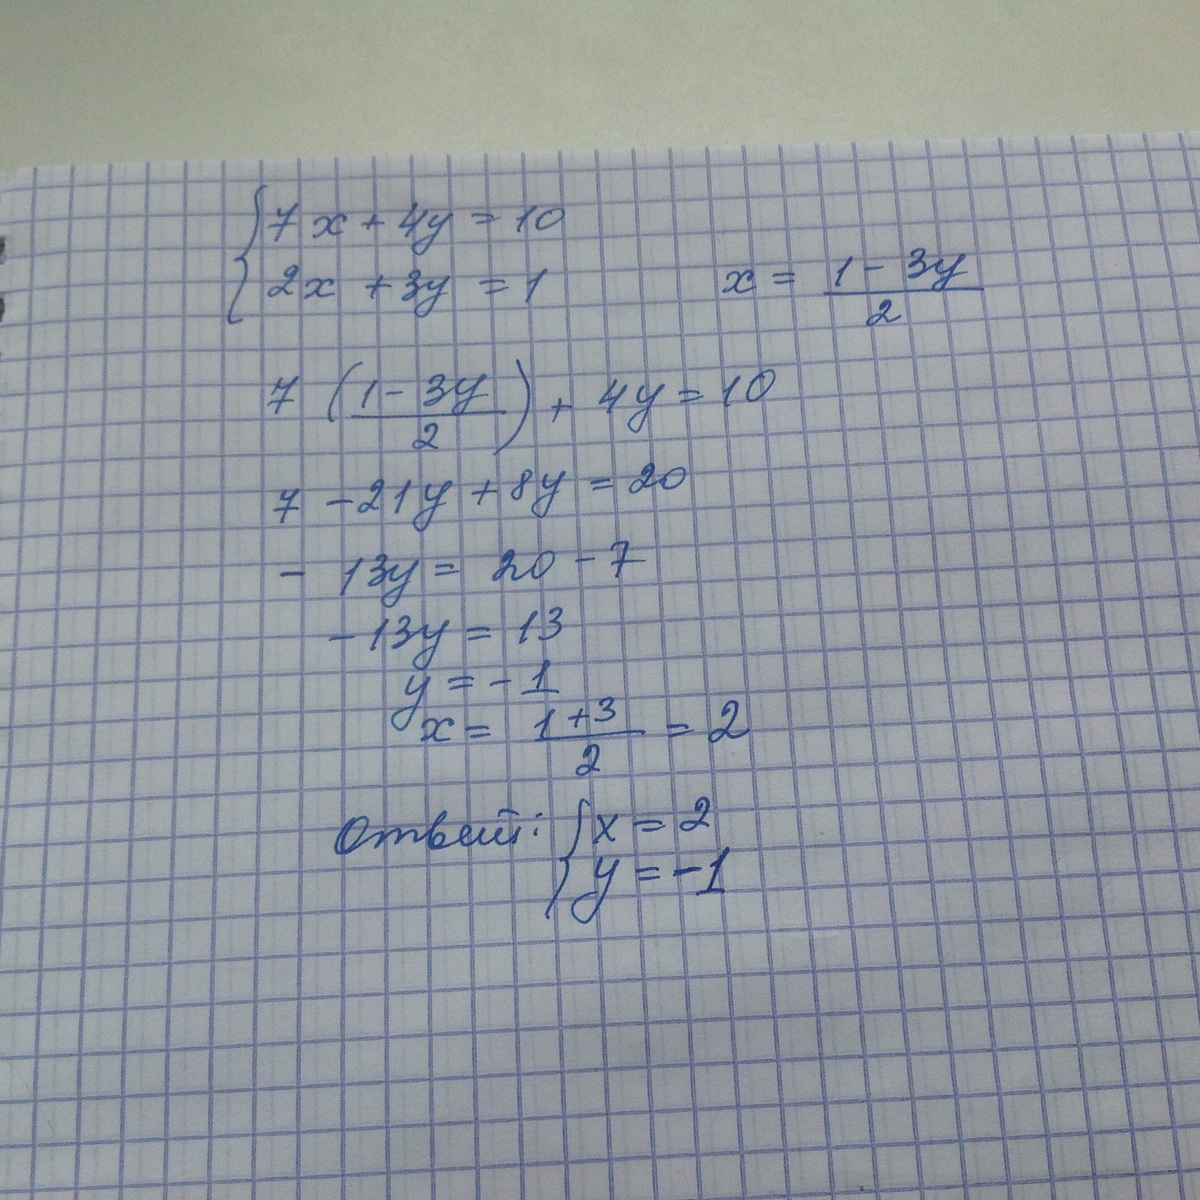 7x + 4y = 10
2x + 3y = 1
x = (1 - 3y)/2
7 ((1 - 3y)/2) + 4y = 10
7 - 21y + 8y = 20
- 13y = 20 - 7
- 13y = 13
y = - 1
x = (1 + 3)/2 = 2
Ответ: { x = 2
y = -1